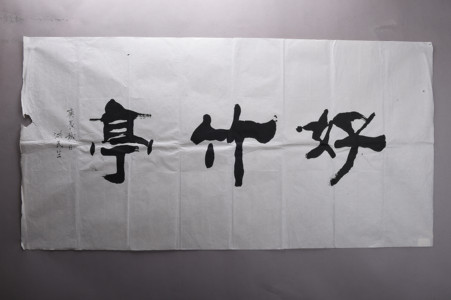 好竹亭